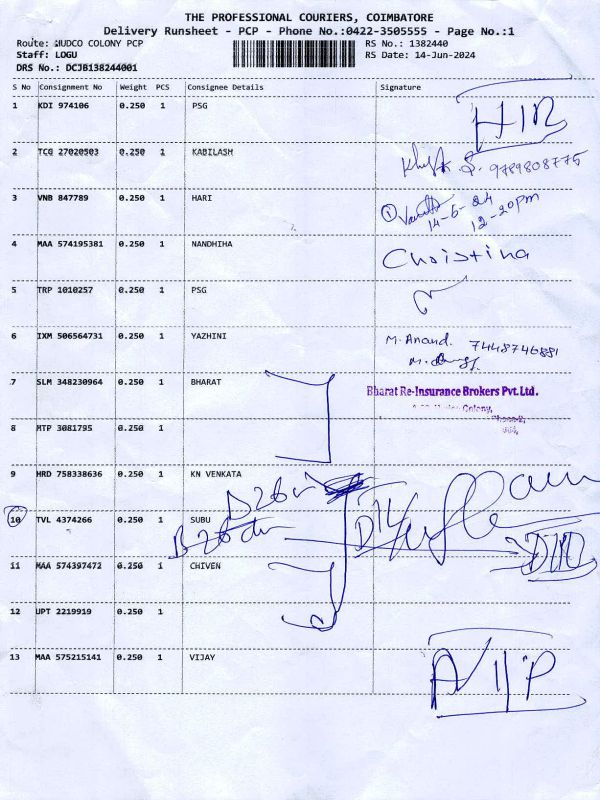 THE PROFESSIONAL COURIERS, COIMBATORE
Delivery Runsheet - PCP - Phone No.:0422-3505555 - Page No.:1
Route: HUDCO COLONY PCP RS No.: 1382440
Staff: LOGU RS Date: 14-Jun-2024
DRS No.: DCJB138244001
S No Consignment No Weight PCS Consignee Details Signature
1 KDI 974106 0.250 1 PSG
2 TCG 27020503 0.250 1 KABILASH 9789808775
3 VNB 847789 0.250 1 HARI 14-6-24
12-20pm
4 MAA 574195381 0.250 1 NANDHIHA Christina
5 TRP 1010257 0.250 1 PSG
6 IXM 506564731 0.250 1 YAZHINI M. Anand. 7448746881
7 SLM 348230964 0.250 1 BHARAT Bharat Re-Insurance Brokers Pvt.Ltd.
Colony,
8 MTP 3081795 0.250 1
9 HRD 758338636 0.250 1 KN VENKATA
10 TVL 4374266 0.250 1 SUBU
11 MAA 574397472 0.250 1 CHIVEN
12 UPT 2219919 0.250 1
13 MAA 575215141 0.250 1 VIJAY